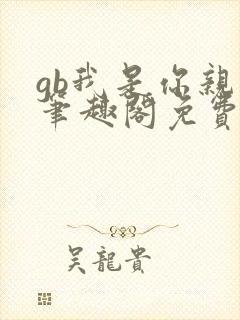 gb我是你親
筆趣閣免費
吳龍貴